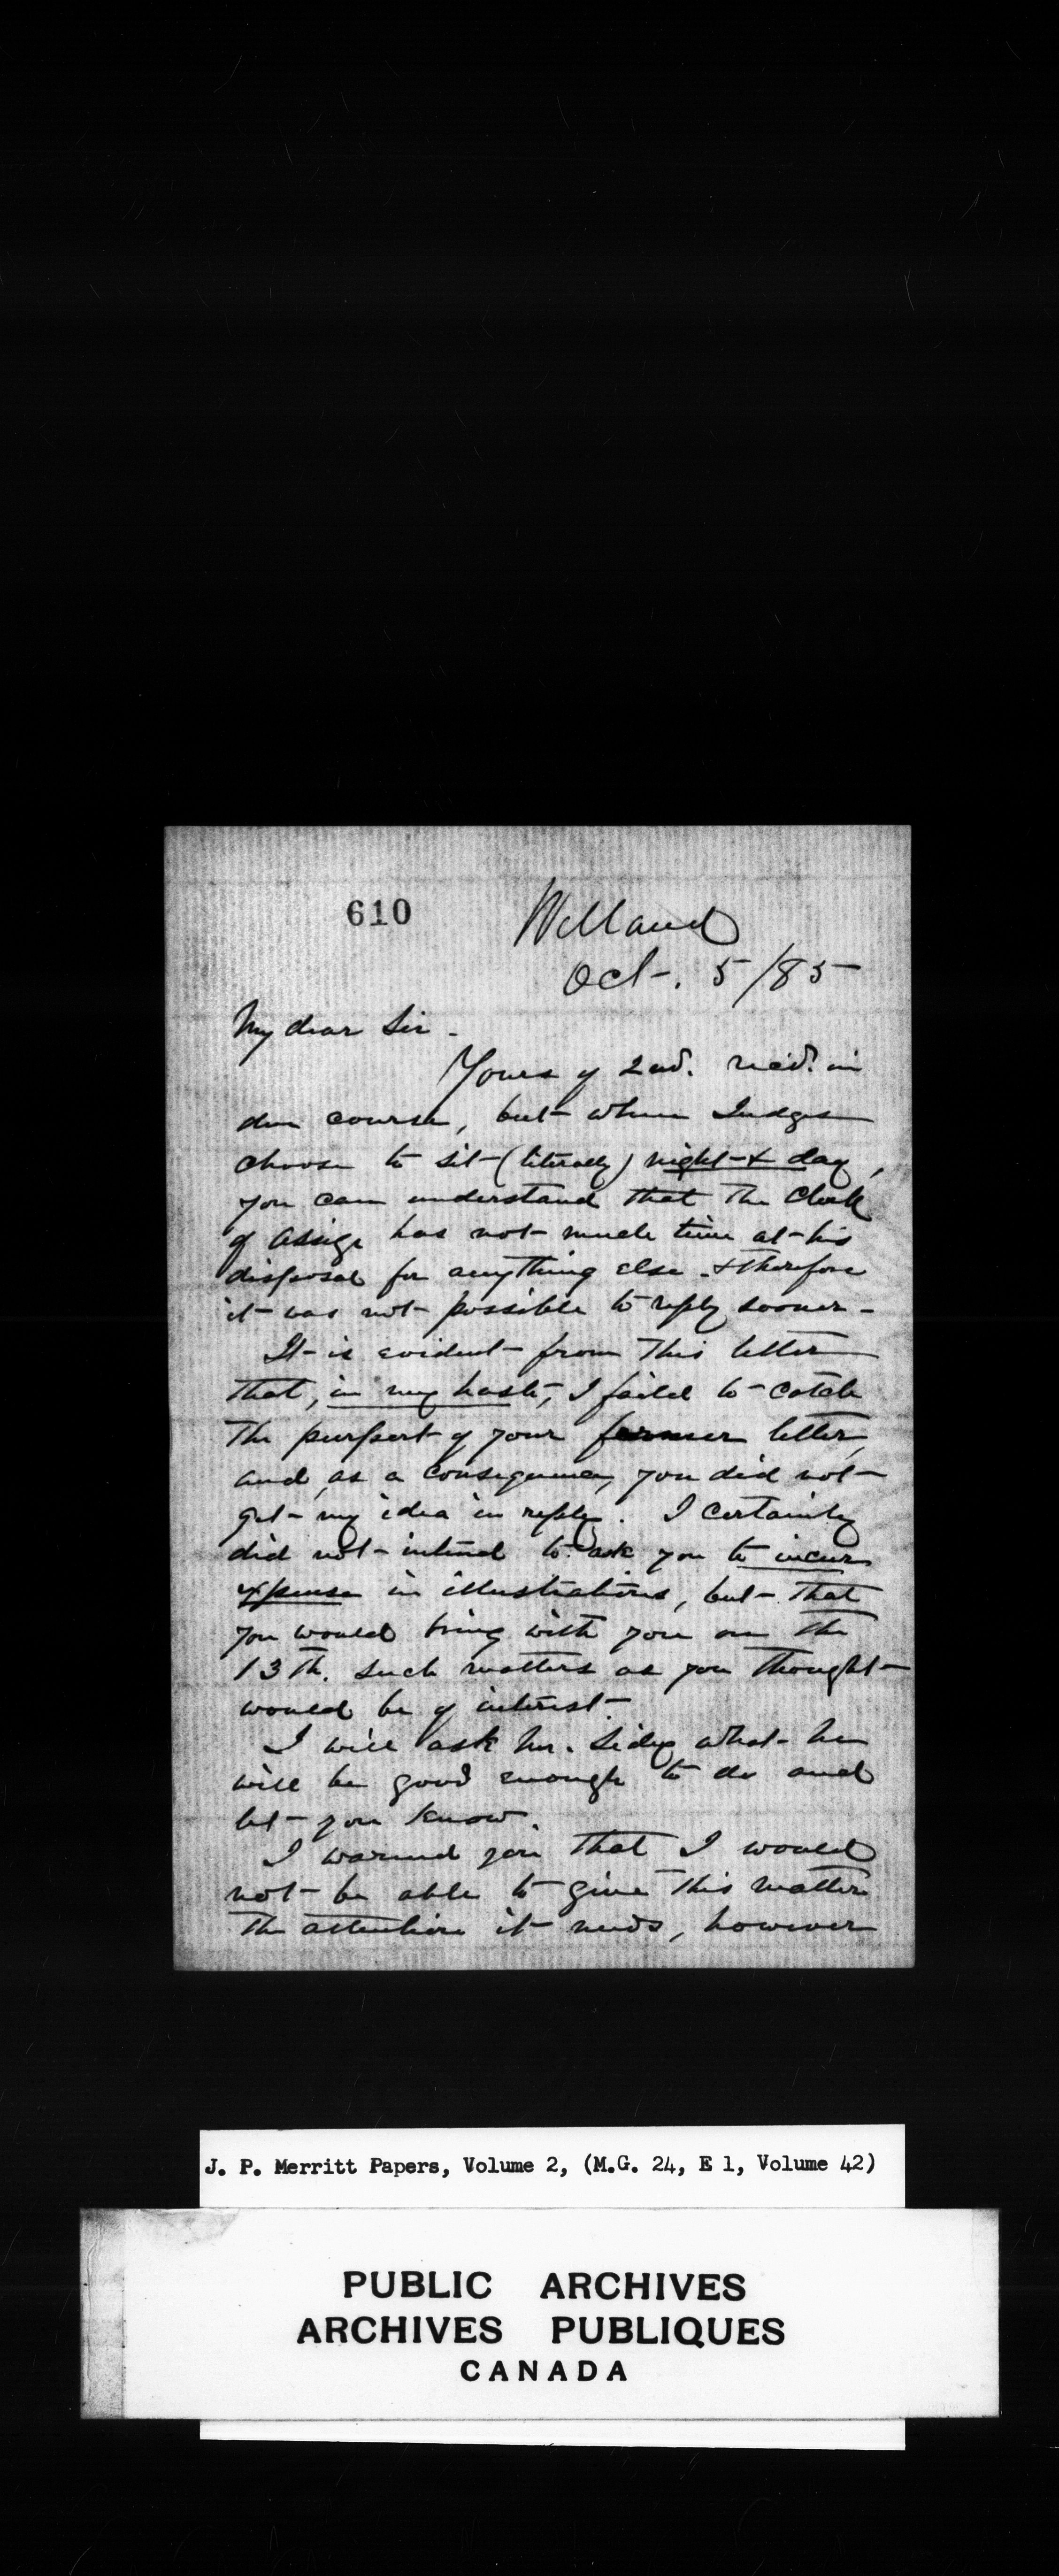 610
Welland
Oct. 5/85
My dear Sir -
Yours of 2nd. rec'd. in
due course, but when Judges
choose to sit (literally) night & day,
you can understand that the Clerk
of Assize has not much time at his
disposal for anything else & therefore
it was not possible to reply sooner -
It is evident from this letter
that, in my haste, I failed to catch
the purport of your former letter,
and, as a consequence, you did not
get my idea in reply. I certainly
did not intend to ask you to incur
expense in illustrations, but that
you would bring with you on the
13th. such matters as you thought
would be of interest.
I will ask Mr. Sidey what he
will be good enough to do and
let you know.
I warned you that I would
not be able to give this matter
the attention it needs, however
J. P. Merritt Papers, Volume 2, (M.G. 24, E 1, Volume 42)
PUBLIC ARCHIVES
ARCHIVES PUBLIQUES
CANADA